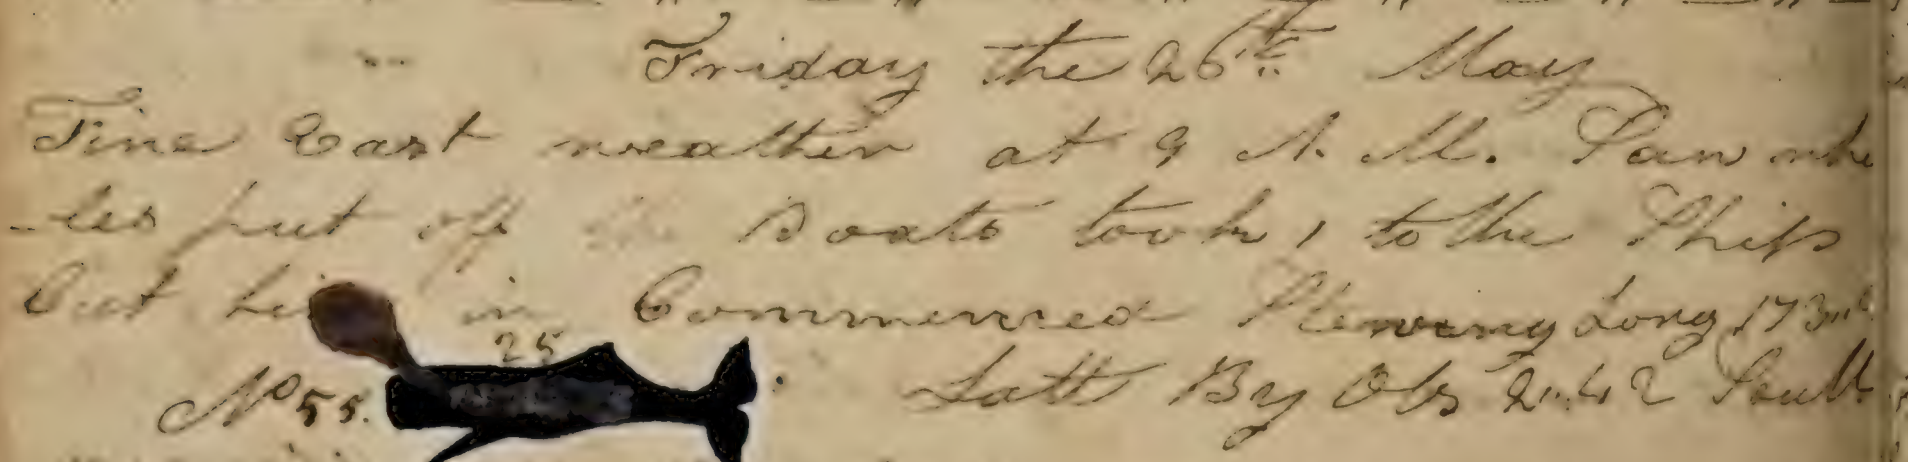 Friday the 26th May
Fine East weather at 9 A. M. Saw wha
-les put off the Boats took 1 to the Ship
Cut him in Commenced Stowing Long 173
25
No 55. Latt By Obs 2.42 South